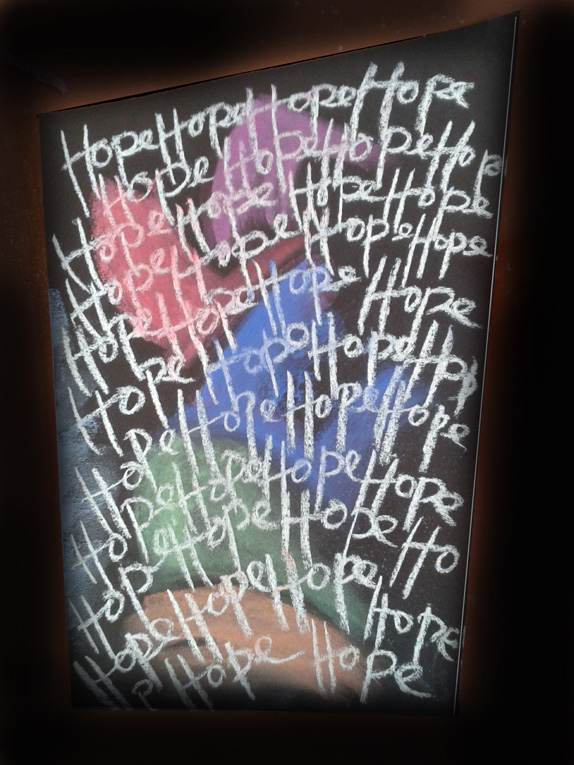 HopeHopeHopeHope
Hope HopeHopeHope
HopeHope HopeHope
HopeHopeHopeHope
HopeHopeHope Hope
Hope HopeHopeHope
Hope HopeHopeHope
HopeHopeHopeHope
HopeHopeHopeHo
Hope HopeHope Hope
HopeHope Hope